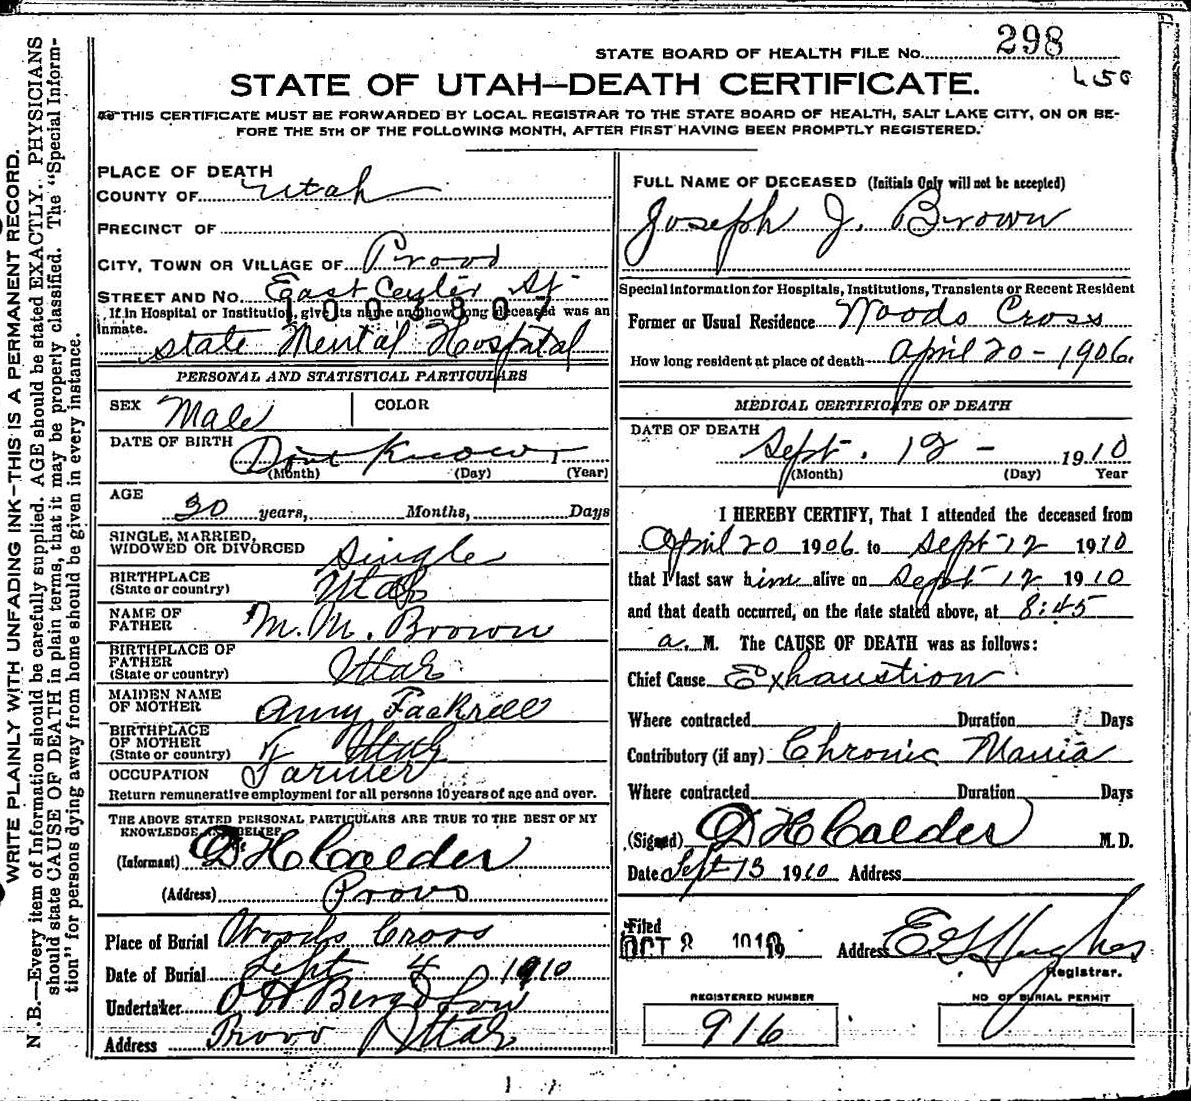 STATE BOARD OF HEALTH FILE No. 298
STATE OF UTAH—DEATH CERTIFICATE.
THIS CERTIFICATE MUST BE FORWARDED BY LOCAL REGISTRAR TO THE STATE BOARD OF HEALTH, SALT LAKE CITY, ON OR BE-
FORE THE 5TH OF THE FOLLOWING MONTH, AFTER FIRST HAVING BEEN PROMPTLY REGISTERED.
WRITE PLAINLY WITH UNFADING INK—THIS IS A PERMANENT RECORD.
N. B.—Every item of Information should be carefully supplied. AGE should be stated EXACTLY. PHYSICIANS
should state CAUSE OF DEATH in plain terms, that it may be properly classified. The "Special Inform-
tion" for persons dying away from home should be given in every instance.
PLACE OF DEATH
COUNTY OF Utah
PRECINCT OF
CITY, TOWN OR VILLAGE OF Provo
STREET AND No. East Center St
1003807
If in Hospital or Institution, give its name and how long deceased was an
inmate.
State Mental Hospital
PERSONAL AND STATISTICAL PARTICULARS
SEX Male COLOR
DATE OF BIRTH Dont Know
(Month) (Day) (Year)
AGE
30 years, Months, Days
SINGLE, MARRIED,
WIDOWED OR DIVORCED Single
BIRTHPLACE
(State or country) Utah
NAME OF
FATHER M. M. Brown
BIRTHPLACE OF
FATHER
(State or country) Utah
MAIDEN NAME
OF MOTHER Amy Fackrell
BIRTHPLACE
OF MOTHER
(State or country) Utah
OCCUPATION Farmer
Return remunerative employment for all persons 10 years of age and over.
THE ABOVE STATED PERSONAL PARTICULARS ARE TRUE TO THE BEST OF MY
KNOWLEDGE AND BELIEF
(Informant) D H Calder
(Address) Provo
Place of Burial Woods Cross
Date of Burial Sept 1910
Undertaker
Address Provo Utah
FULL NAME OF DECEASED (Initials Only will not be accepted)
Joseph J. Brown
Special information for Hospitals, Institutions, Transients or Recent Resident
Former or Usual Residence Woods Cross
How long resident at place of death April 20 - 1906.
MEDICAL CERTIFICATE OF DEATH
DATE OF DEATH
Sept. 12 - 1910
(Month) (Day) Year
I HEREBY CERTIFY, That I attended the deceased from
April 20 1906 to Sept 12 1910
that I last saw him alive on Sept 12 1910
and that death occurred, on the date stated above, at 8:45
a. M. The CAUSE OF DEATH was as follows:
Chief Cause Exhaustion
Where contracted Duration Days
Contributory (if any) Chronic Mania
Where contracted Duration Days
(Signed) D H Calder M. D.
Date Sept 13 1910 Address
Filed
OCT 8 1910 19 Address E G Hughes
Registrar.
REGISTERED NUMBER
916
NO OF BURIAL PERMIT